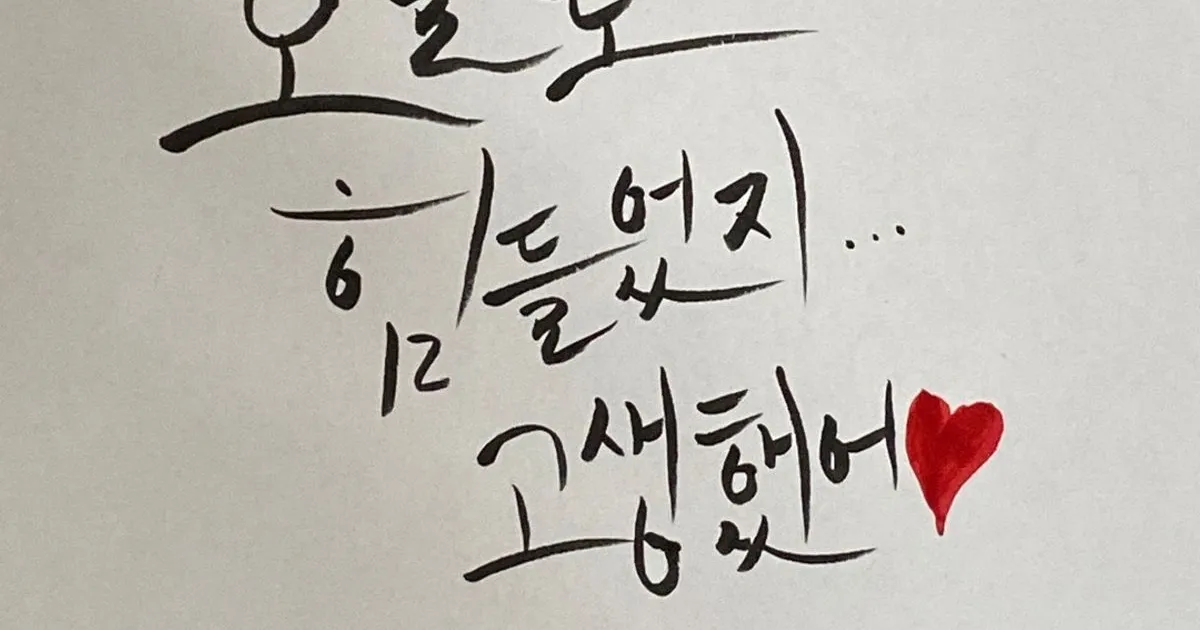 오늘도
힘들었지...
고생했어